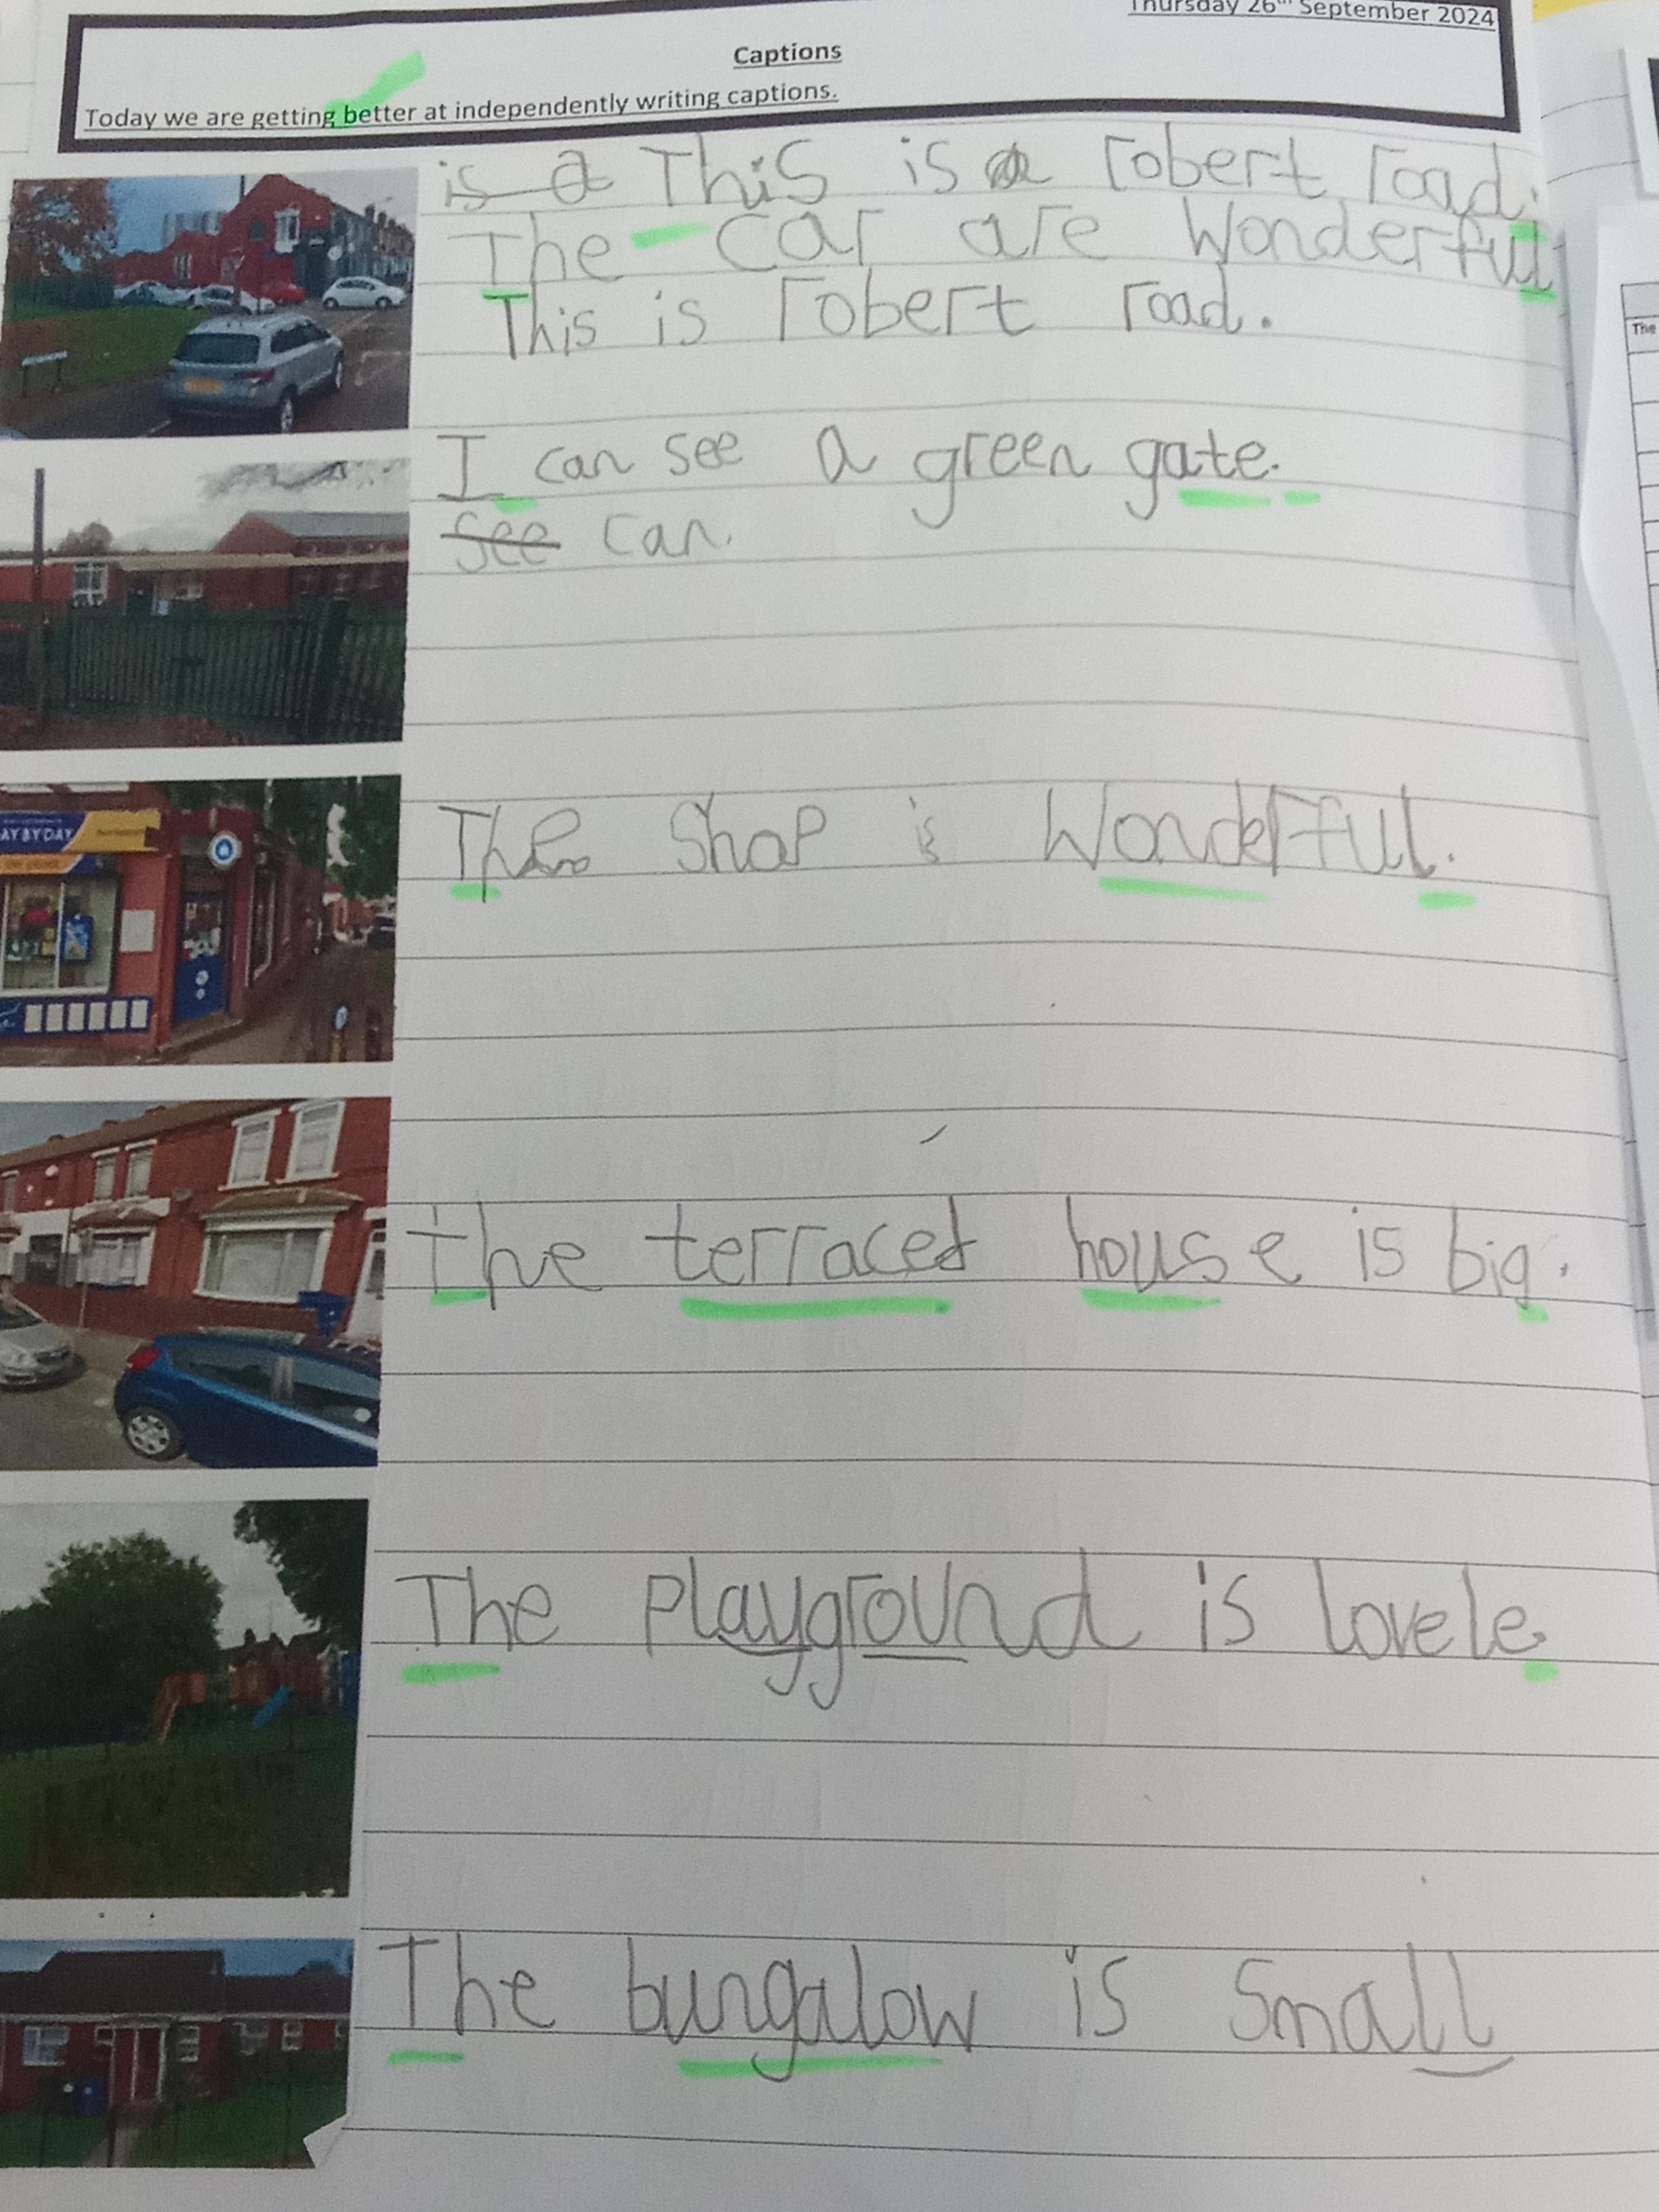 Thursday 26th September 2024
Captions
Today we are getting better at independently writing captions.
is a This is a robert road.
The car are Wonderful.
This is robert road.
I can see a green gate.
see can.
AY BY DAY
The Shop is Wonderful.
the terraced house is big.
The playground is lovele.
The bungalow is Small
The